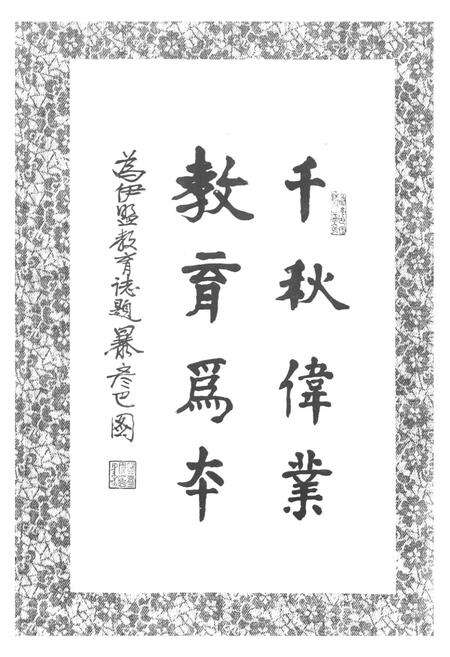 千秋偉業
教育爲本
為伊盟教育誌題 暴彦巴图